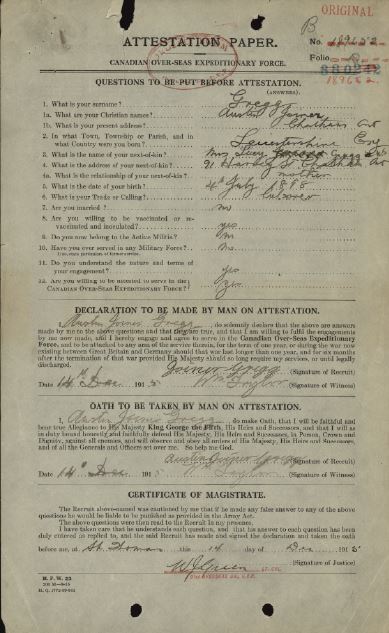 ORIGINAL
B
ATTESTATION PAPER.
No.
CANADIAN OVER-SEAS EXPEDITIONARY FORCE.
Folio.
QUESTIONS TO BE PUT BEFORE ATTESTATION.
(ANSWERS).
1. What is your surname? Gregg
1a. What are your Christian names? Austin Joiner
1b. What is your present address? Chatham
2. In what Town, Township or Parish, and in what Country were you born? Leicestershire Eng
3. What is the name of your next-of-kin? Mrs Gregg
4. What is the address of your next-of-kin? Chatham
4a. What is the relationship of your next-of-kin? mother
5. What is the date of your birth? 4 July 1888
6. What is your Trade or Calling? Labourer
7. Are you married? no
8. Are you willing to be vaccinated or re-
vaccinated and inoculated? yes
9. Do you now belong to the Active Militia? No
10. Have you ever served in any Military Force? No.
11. Do you understand the nature and terms of
your engagement? yes
12. Are you willing to be attested to serve in the
CANADIAN OVER-SEAS EXPEDITIONARY FORCE? Yes
DECLARATION TO BE MADE BY MAN ON ATTESTATION.
I, Austin Joiner Gregg, do solemnly declare that the above are answers
made by me to the above questions and that they are true, and that I am willing to fulfil the engagements
by me now made, and I hereby engage and agree to serve in the Canadian Over-Seas Expeditionary
Force, and to be attached to any arm of the service therein, for the term of one year, or during the war now
existing between Great Britain and Germany should that war last longer than one year, and for six months
after the termination of that war provided His Majesty should so long require my services, or until legally
discharged.
Joiner Gregg (Signature of Recruit)
Date 14th Dec 1915 Taylor (Signature of Witness)
OATH TO BE TAKEN BY MAN ON ATTESTATION.
I, Austin Joiner Gregg, do make Oath, that I will be faithful and
bear true Allegiance to His Majesty King George the Fifth, His Heirs and Successors, and that I will as
in duty bound honestly and faithfully defend His Majesty, His Heirs and Successors, in Person, Crown and
Dignity, against all enemies, and will observe and obey all orders of His Majesty, His Heirs and Successors,
and of all the Generals and Officers set over me. So help me God.
Austin Joiner Gregg (Signature of Recruit)
Date 14th Dec 1915 Taylor (Signature of Witness)
CERTIFICATE OF MAGISTRATE.
The Recruit above-named was cautioned by me that if he made any false answer to any of the above
questions he would be liable to be punished as provided in the Army Act.
The above questions were then read to the Recruit in my presence.
I have taken care that he understands each question, and that his answer to each question has been
duly entered as replied to, and the said Recruit has made and signed the declaration and taken the oath
before me, at St. Thomas this 14 day of Dec 1915
W J Green LT. COL. (Signature of Justice)
M. F. W. 23